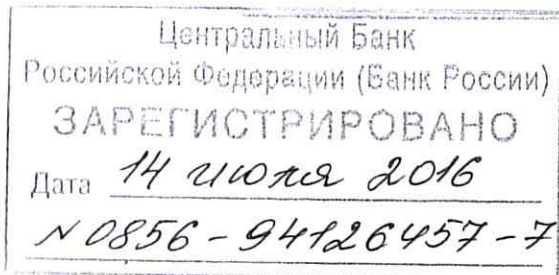 Центральный Банк
Российской Федерации (Банк России)
ЗАРЕГИСТРИРОВАНО
Дата 14 июля 2016
N 0856-94126457-7